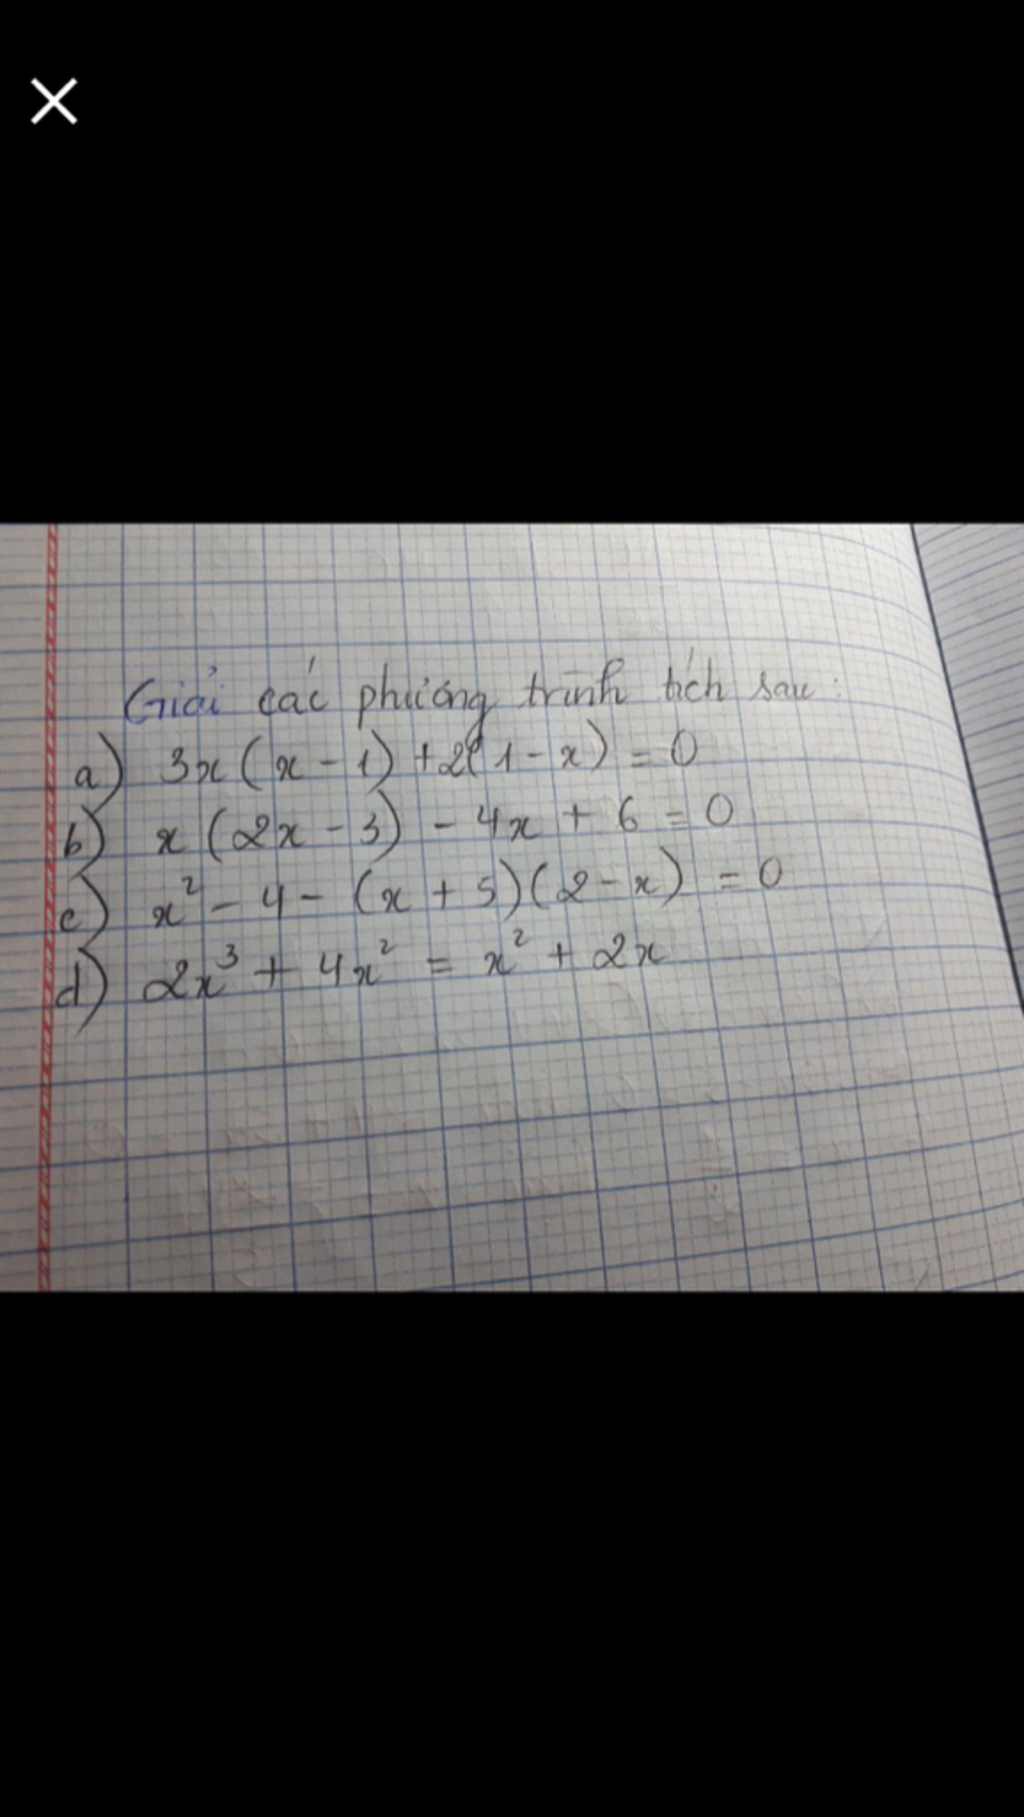 Giải các phương trình tích sau:
a) 3x(x - 1) + 2(1 - x) = 0
b) x(2x - 3) - 4x + 6 = 0
c) x² - 4 - (x + 5)(2 - x) = 0
d) 2x³ + 4x² = x² + 2x